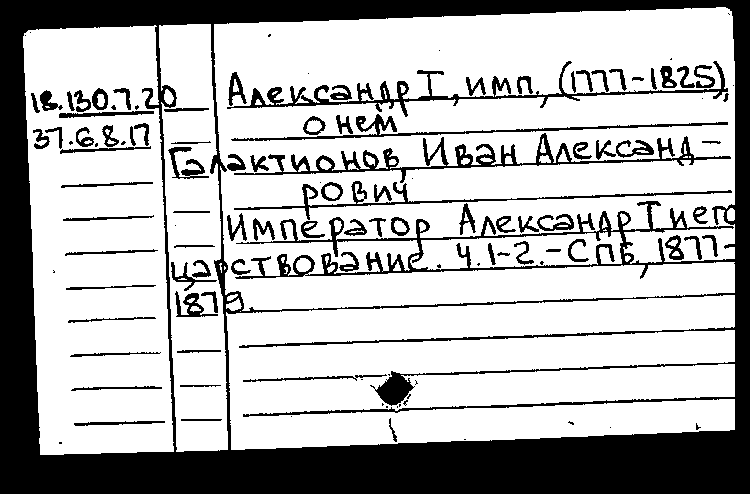 18.130.7.20 Александр I, имп., (1777-1825),
о нем
37.6.8.17
Галактионов, Иван Александ-
рович
Император Александр I и его
царствование. Ч.1-2.-СПБ, 1877-
1879.